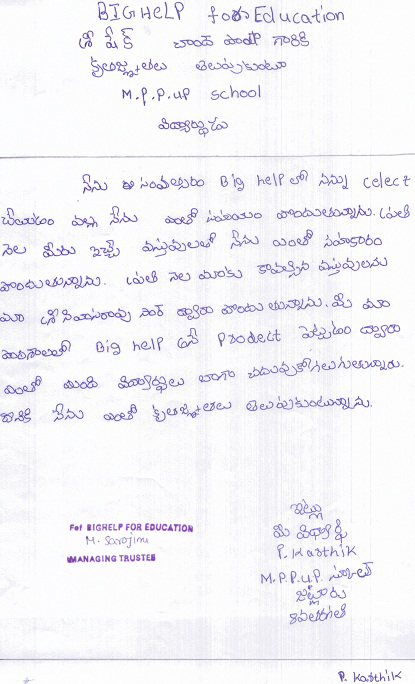 BIGHELP for Education
శ్రీ షేక్ చాంద్ పాషా గారికి
కృతజ్ఞతలు తెలుపుకుంటూ
M.P.P.UP School
విద్యార్థుడు
నేను ఈ సంవత్సరం Big help లో నన్ను Celect
చేయడం వల్ల నేను ఎంతో సహాయం పొందుతున్నాను. ప్రతి
నెల మీరు ఇచ్చే వస్తువులతో నేను ఎంతో సహకారం
పొందుతున్నాను. ప్రతి నెల మాకు కావల్సిన వస్తువులను
మా శ్రీనివాసరావు సార్ ద్వారా పొందుతున్నాను. మీ మా
పాఠశాలలో Big help అనే Prodect పెట్టడం ద్వారా
ఎంతో మంది విద్యార్థులు బాగా చదువుకోగలుగుతున్నారు.
దానికి నేను ఎంతో కృతజ్ఞతలు తెలుపుకుంటున్నాను.
ఇట్లు
మీ విద్యార్థి
P. Karthik
M.P.P.U.P. స్కూల్
కావలి
For BIGHELP FOR EDUCATION
M. Sarojini
MANAGING TRUSTEE
P. Karthik